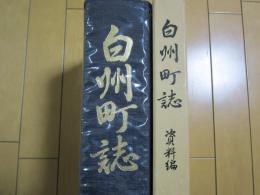 白州町誌
白州町誌
資料編